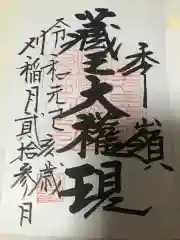 季嶺
藏王大権現
令和元己亥歳
刈稲月貳拾参日